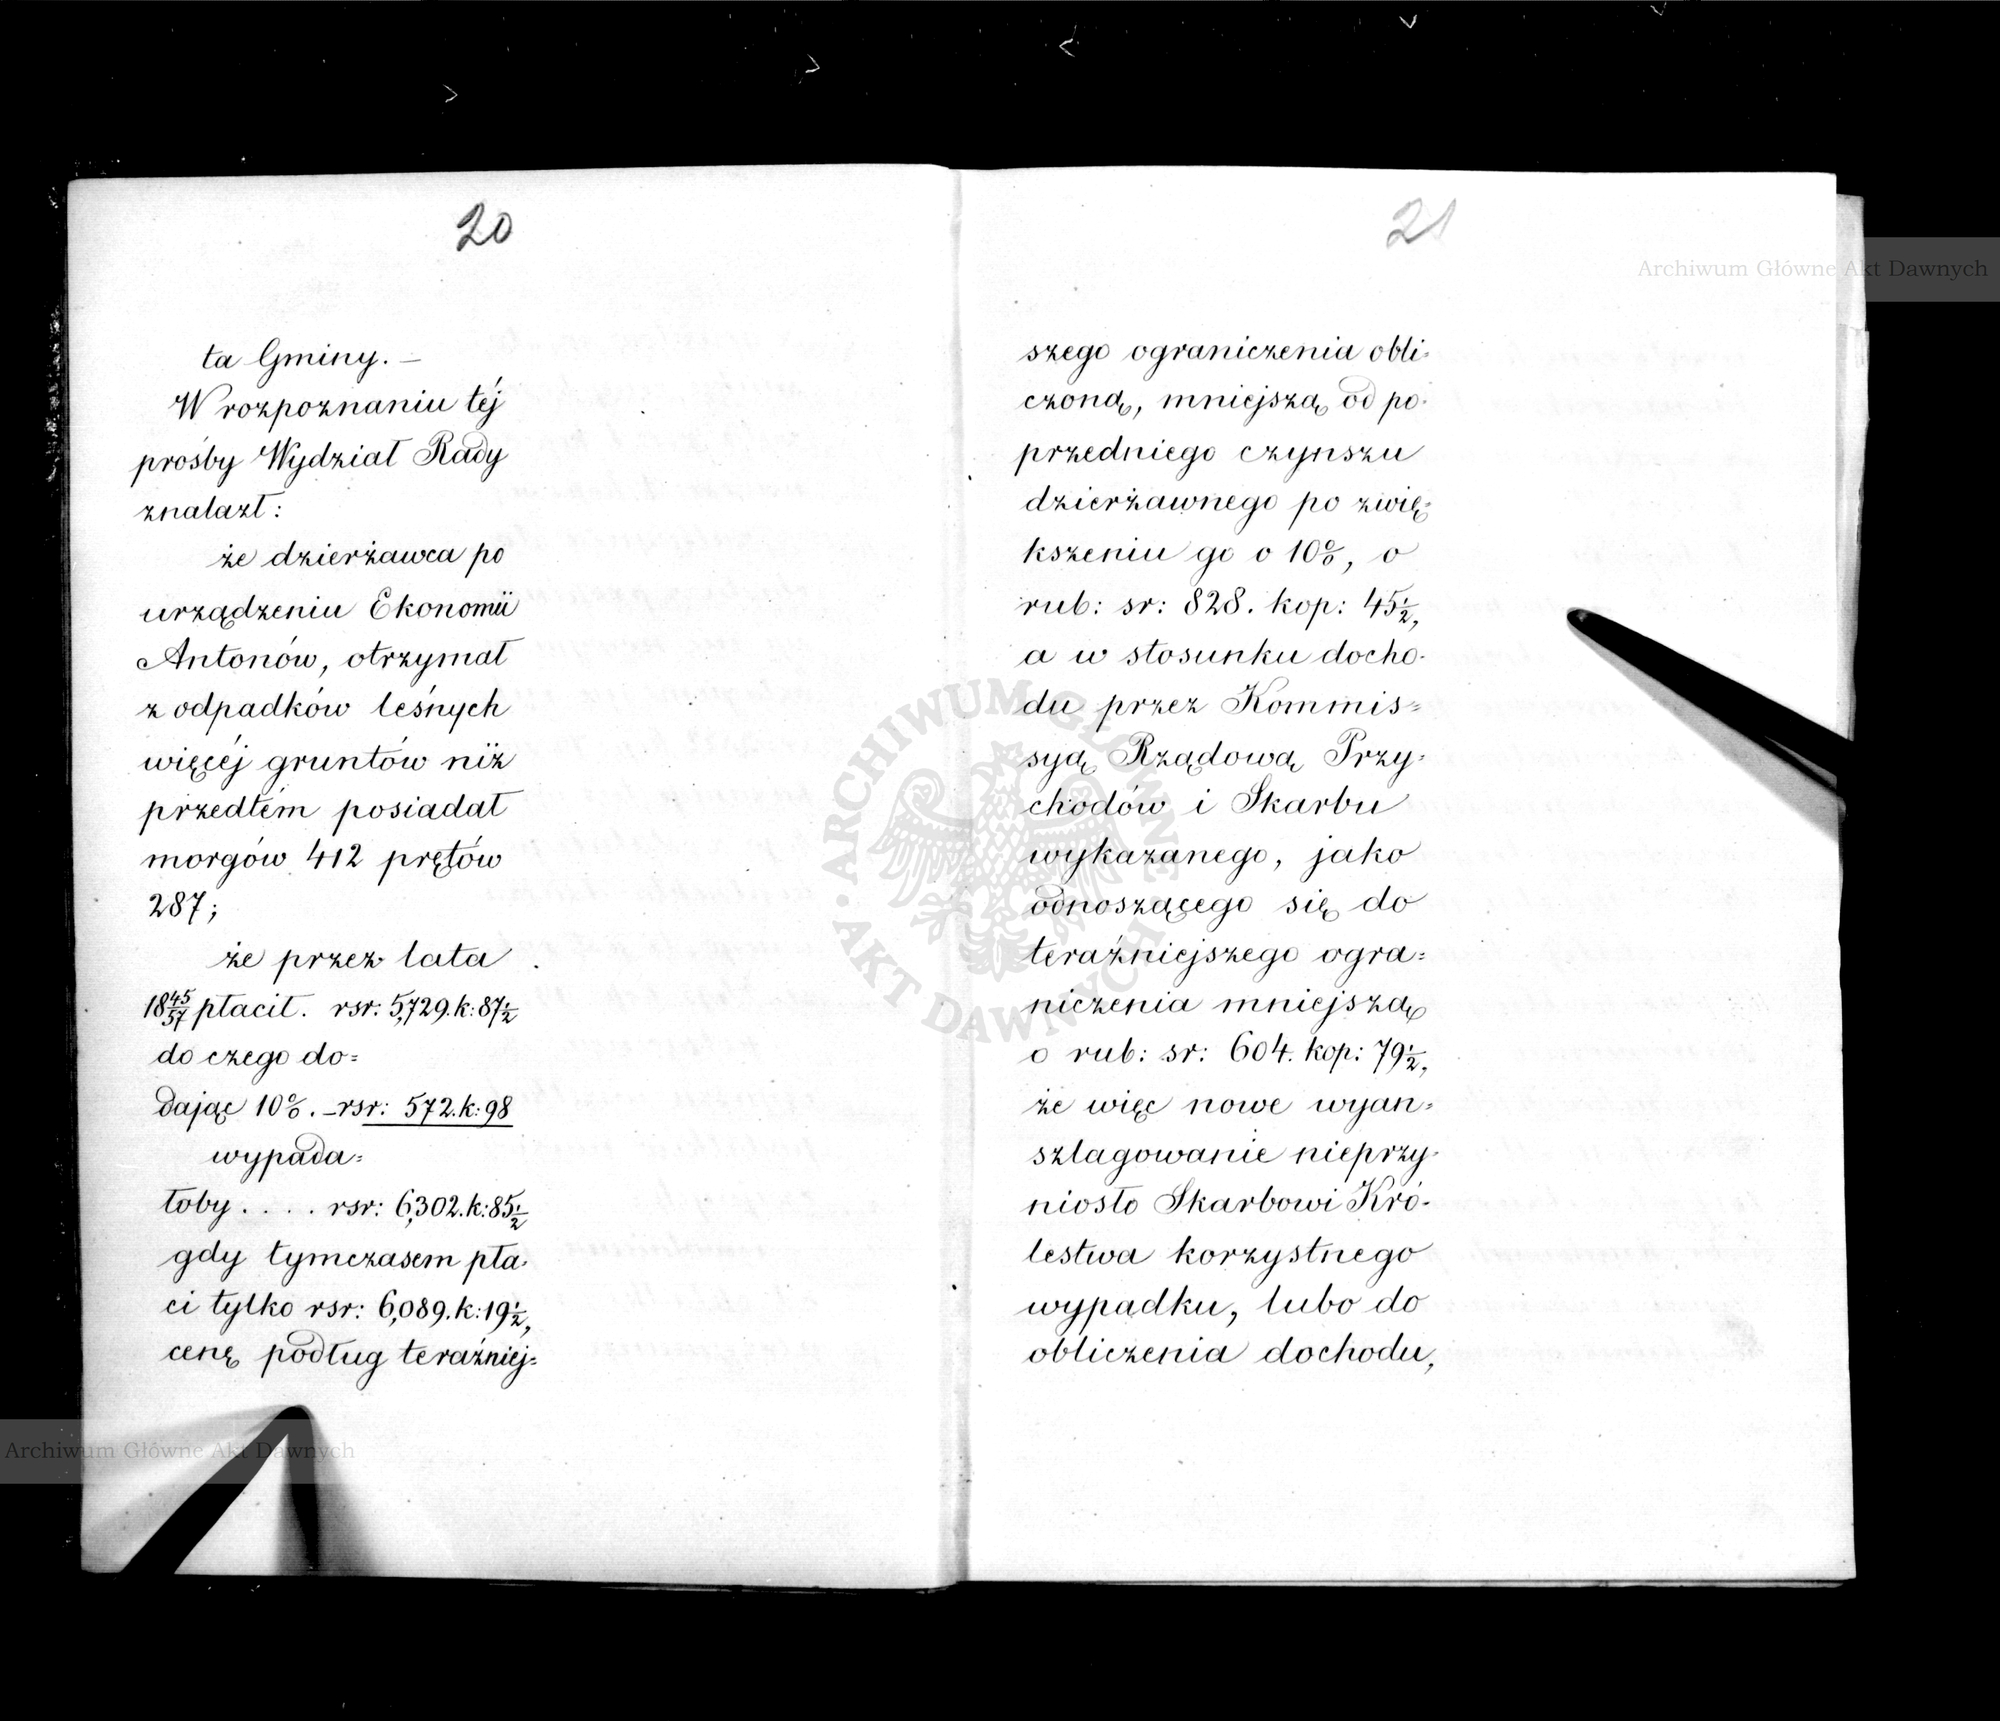 20
ta Gminy. –
W rozpoznaniu téj
prośby Wydział Rady
znalazł:
że dzierżawca po
urządzeniu Ekonomii
Antonów, otrzymał
z odpadków leśnych
więcéj gruntów niż
przedtém posiadał
morgów 412 prętów
287;
że przez lata
18 45/57 płacił. rsr: 5,729. k: 87½
do czego do=
dając 10%. – rsr: 572. k: 98
wypada=
łoby . . . . rsr: 6,302. k: 85½
gdy tymczasem pła-
ci tylko rsr: 6,089. k: 19½,
cenę podług teraźniej=
21
szego ograniczenia obli-
czoną, mniejszą od po-
przedniego czynszu
dzierżawnego po zwię-
kszeniu go o 10%, o
rub: sr: 828. kop: 45½,
a w stosunku docho-
du przez Kommis=
syą Rządową Przy-
chodów i Skarbu
wykazanego, jako
odnoszącego się do
teraźniejszego ogra=
niczenia mniejszą
o rub: sr: 604. kop: 79½,
że więc nowe wyan=
szlagowanie nieprzy-
niosło Skarbowi Kró-
lestwa korzystnego
wypadku, lubo do
obliczenia dochodu,
Archiwum Główne Akt Dawnych
Archiwum Główne Akt Dawnych
ARCHIWUM GŁÓWNE AKT DAWNYCH